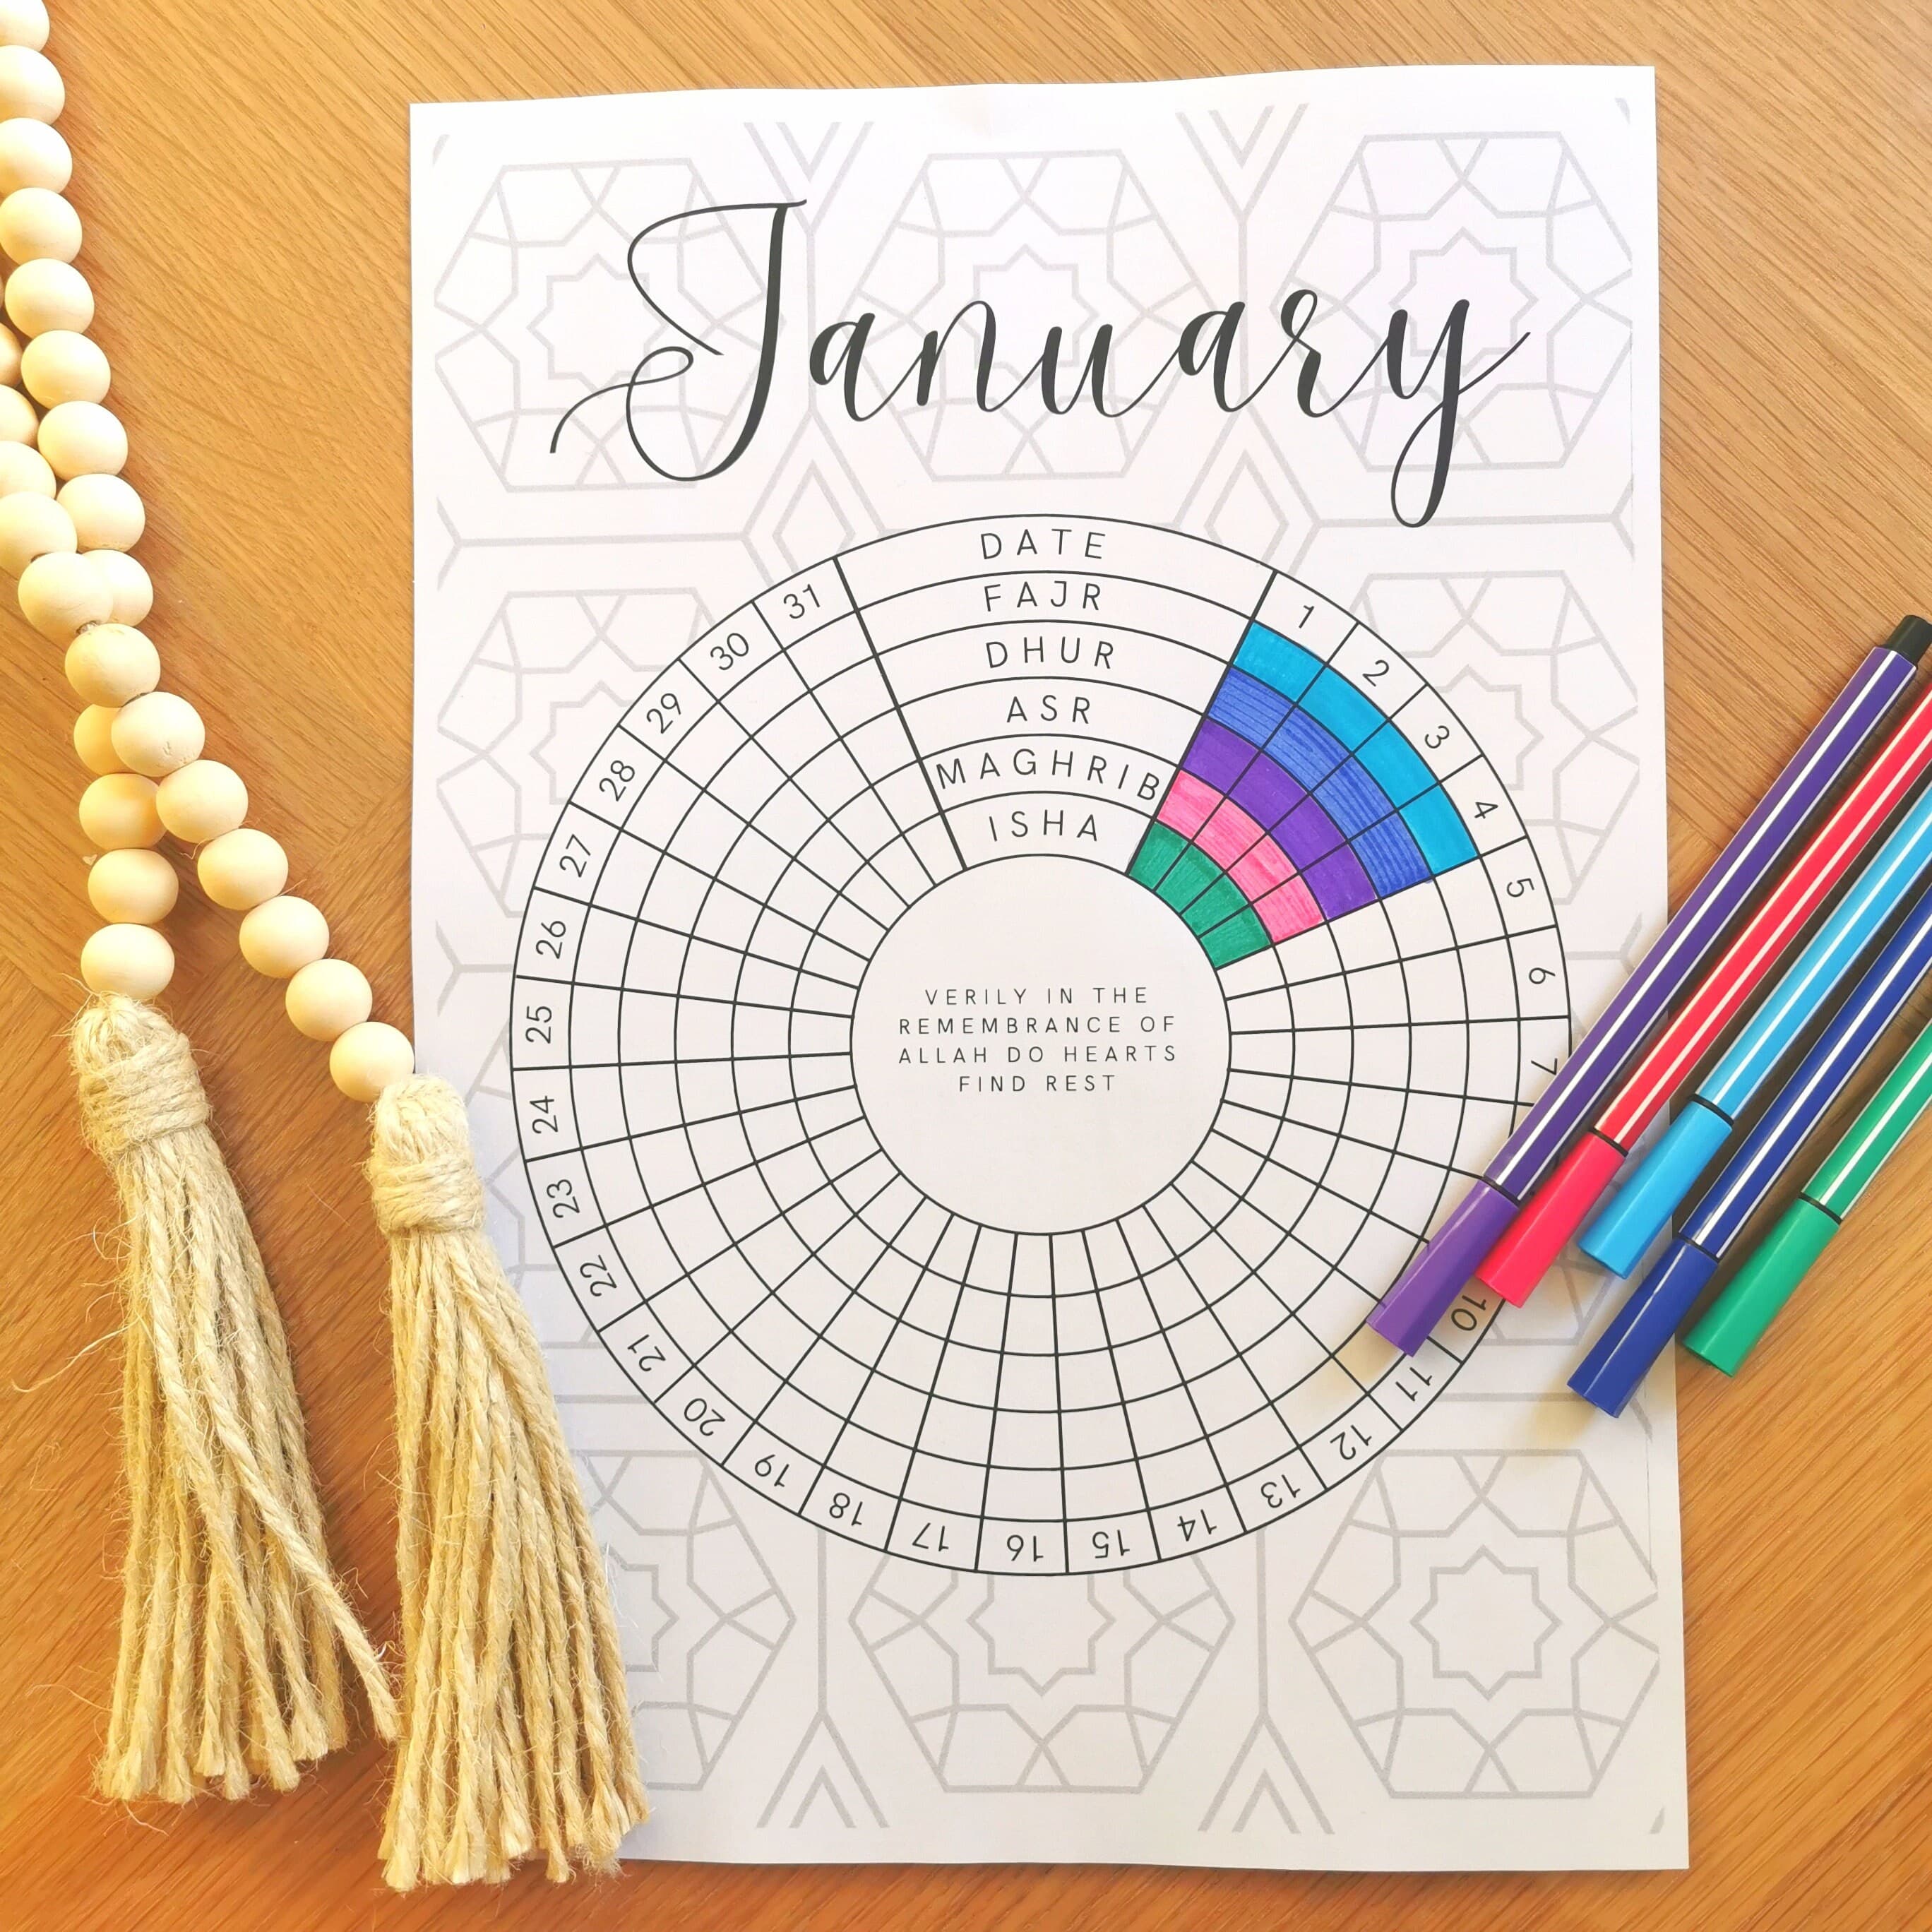 January
DATE
FAJR
DHUR
ASR
MAGHRIB
ISHA
1
2
3
4
5
6
7
10
11
12
13
14
15
16
17
18
19
20
21
22
23
24
25
26
27
28
29
30
31
VERILY IN THE
REMEMBRANCE OF
ALLAH DO HEARTS
FIND REST